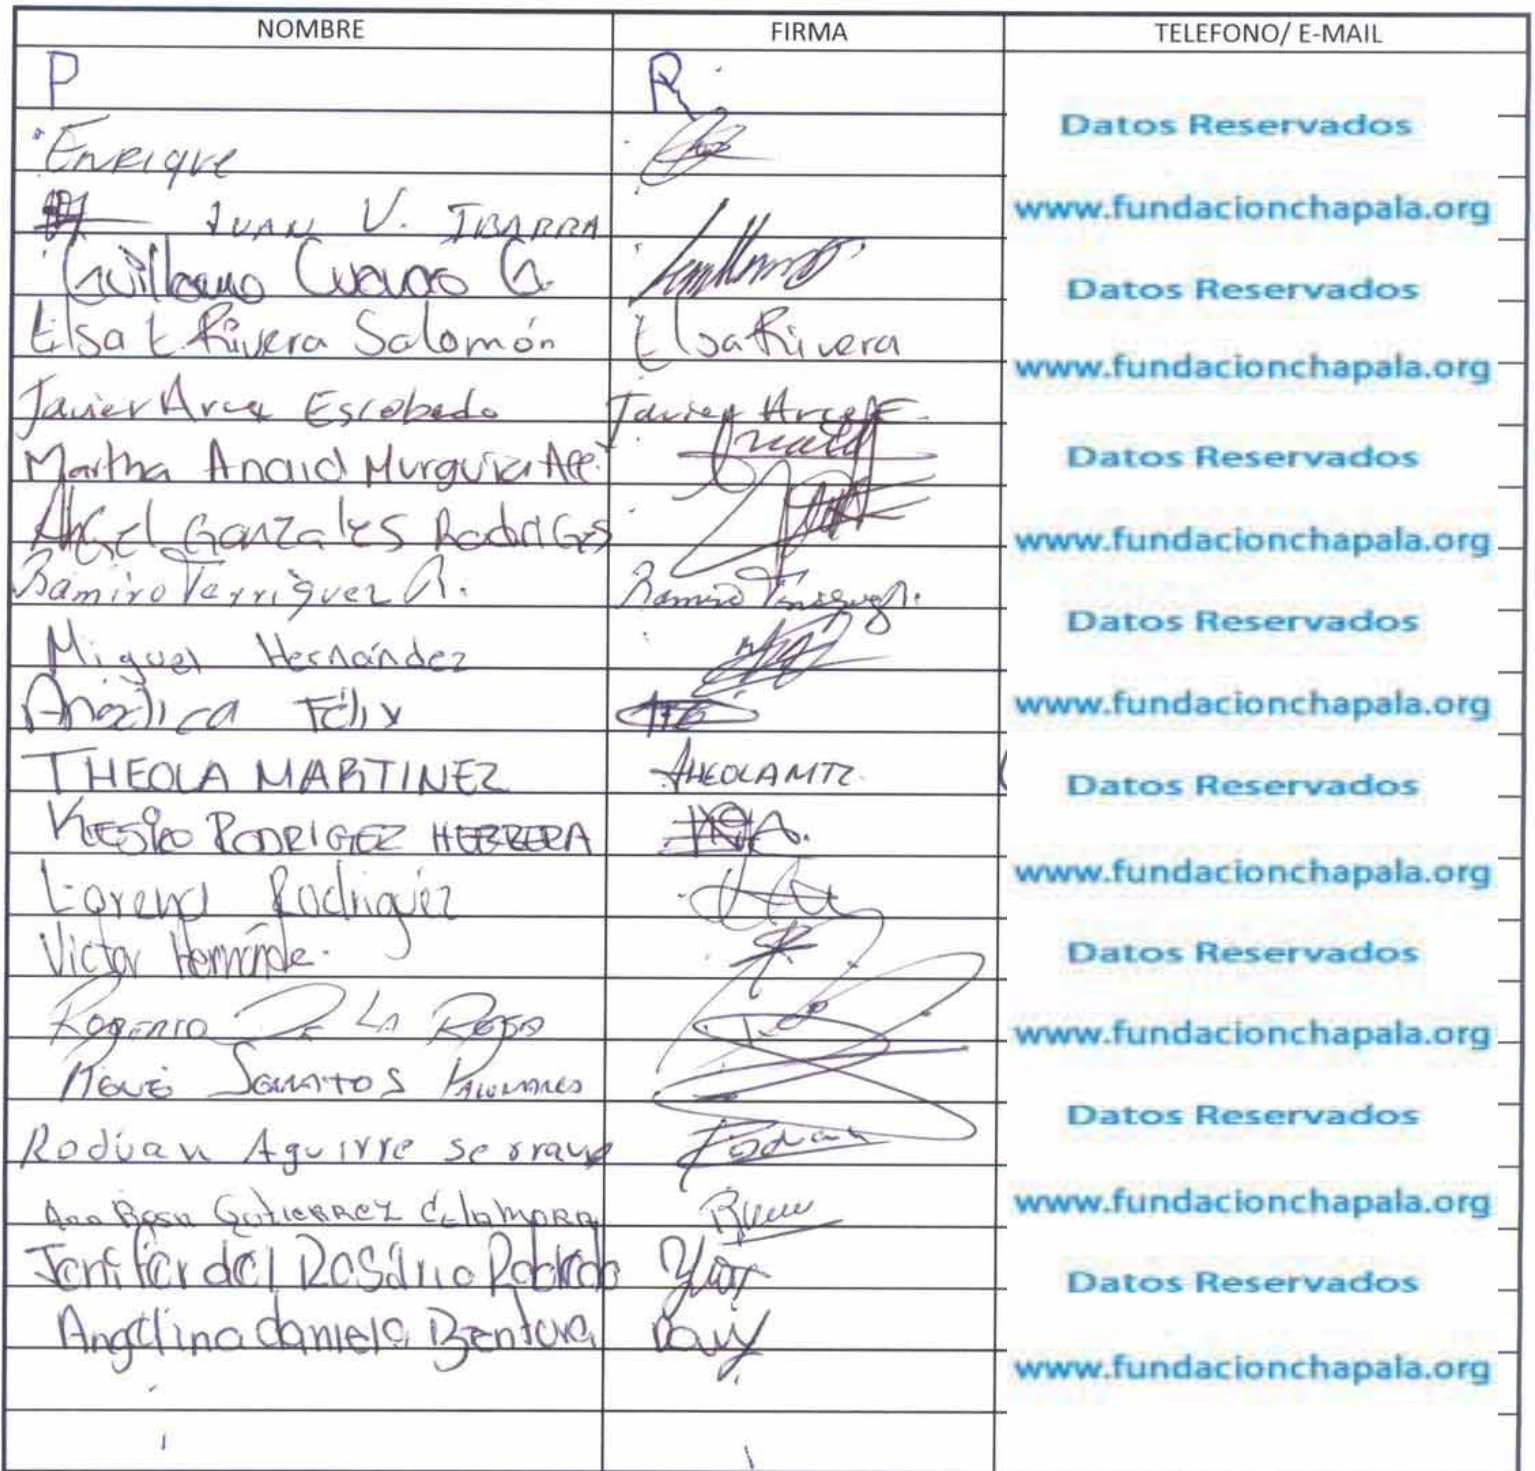 NOMBRE FIRMA TELEFONO/ E-MAIL
P R
Enrique
Datos Reservados
JUAN V. IBARRA
www.fundacionchapala.org
Guillermo G.
Datos Reservados
Elsa E Rivera Salomón Elsa Rivera
www.fundacionchapala.org
Javier Arce Escobedo Javier Arce E.
Martha Anaid Murguia
Datos Reservados
Angel Gonzales Rodriges
www.fundacionchapala.org
Ramiro Terriquez R. Ramiro
Datos Reservados
Miguel Hernández
Angelica Félix
www.fundacionchapala.org
THEOLA MARTINEZ THEOLA MTZ.
Datos Reservados
RODRIGEZ HERRERA
www.fundacionchapala.org
Lorena Rodriguez
Victor
Datos Reservados
Rogerio De La Rosa
www.fundacionchapala.org
Santos
Datos Reservados
Roduan Aguirre serrano Roduan
Ana Rosa Gutierrez
www.fundacionchapala.org
Jenifer del Rosario Robledo
Datos Reservados
Angelina daniela Bentura
www.fundacionchapala.org